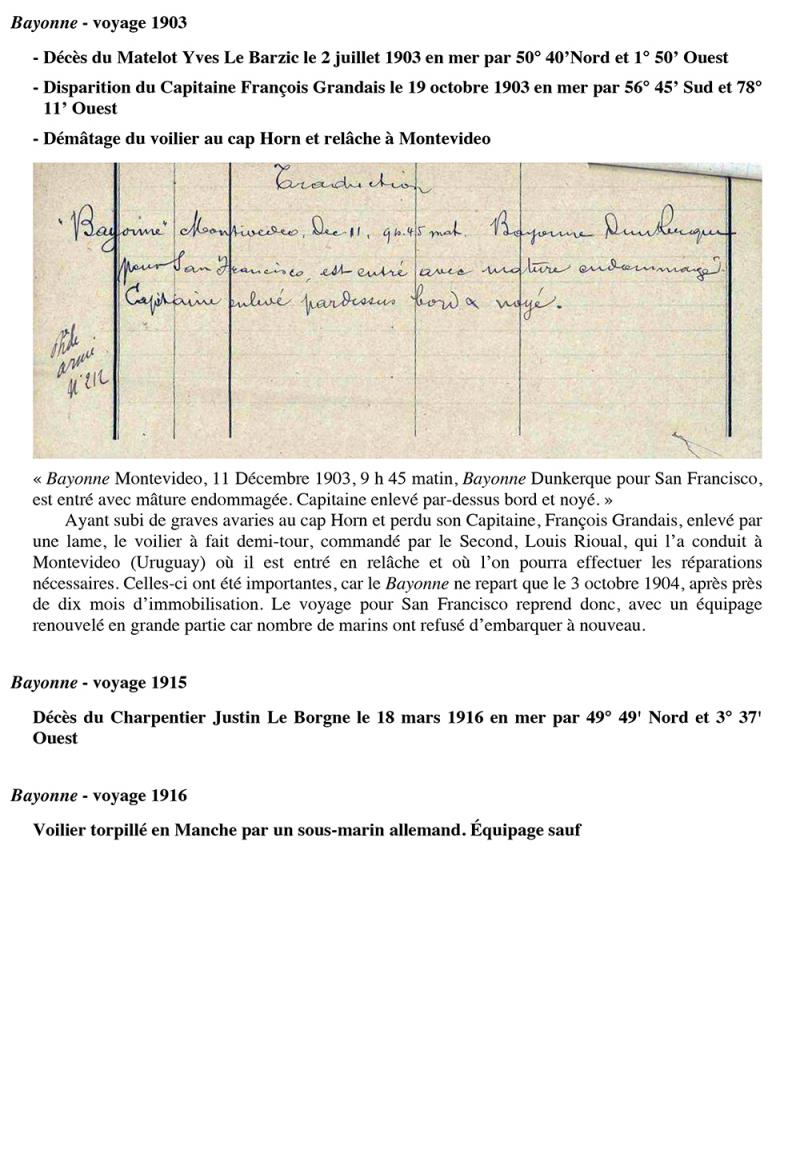 Bayonne - voyage 1903
- Décès du Matelot Yves Le Barzic le 2 juillet 1903 en mer par 50° 40’Nord et 1° 50’ Ouest
- Disparition du Capitaine François Grandais le 19 octobre 1903 en mer par 56° 45’ Sud et 78°
11’ Ouest
- Démâtage du voilier au cap Horn et relâche à Montevideo
Traduction
"Bayonne" Montivedeo, Dec 11, 9h.45 mat. Bayonne Dunkerque
pour San Francisco, est entré avec mature endommagé.
Capitaine enlevé pardessus bord & noyé.
N° 212
« Bayonne Montevideo, 11 Décembre 1903, 9 h 45 matin, Bayonne Dunkerque pour San Francisco,
est entré avec mâture endommagée. Capitaine enlevé par-dessus bord et noyé. »
Ayant subi de graves avaries au cap Horn et perdu son Capitaine, François Grandais, enlevé par
une lame, le voilier à fait demi-tour, commandé par le Second, Louis Rioual, qui l’a conduit à
Montevideo (Uruguay) où il est entré en relâche et où l’on pourra effectuer les réparations
nécessaires. Celles-ci ont été importantes, car le Bayonne ne repart que le 3 octobre 1904, après près
de dix mois d’immobilisation. Le voyage pour San Francisco reprend donc, avec un équipage
renouvelé en grande partie car nombre de marins ont refusé d’embarquer à nouveau.
Bayonne - voyage 1915
Décès du Charpentier Justin Le Borgne le 18 mars 1916 en mer par 49° 49' Nord et 3° 37'
Ouest
Bayonne - voyage 1916
Voilier torpillé en Manche par un sous-marin allemand. Équipage sauf